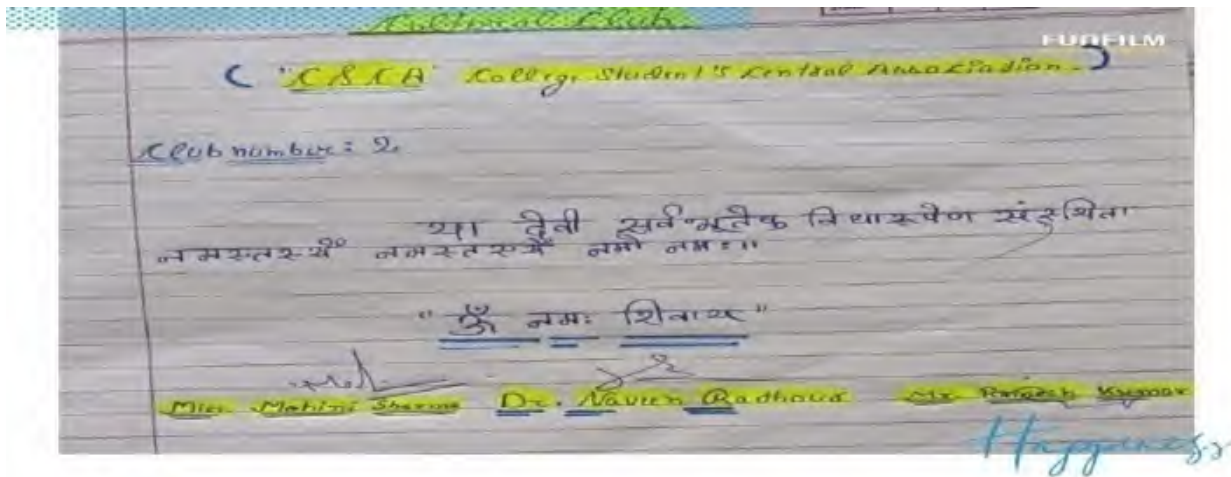 Cultural Club
FUJIFILM
( "CSCA" College Student's Central Association. )
Club number: 2
या देवी सर्वभूतेषु विद्यारूपेण संस्थिता
नमस्तस्यै नमस्तस्यै नमो नमः॥
" ॐ नमः शिवाय "
Miss. Mohini Sharma Dr. Naveen Radhoud Mr. Kumar
Happiness